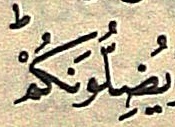 يُضِلُّوْنَكُمْؕ